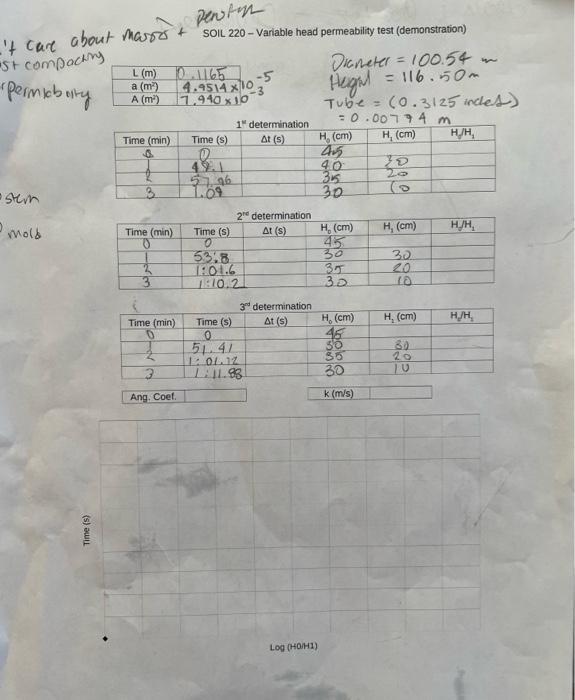 't care about masses + density
SOIL 220 – Variable head permeability test (demonstration)
st compacting
permibility
L (m) 0.1165
a (m²) 4.9514 x 10^-5
A (m²) 7.940 x 10^-3
Diameter = 100.54 m
Height = 116.50m
Tube = (0.3125 inches)
= 0.00794 m
1st determination
Time (min) Time (s) Δt (s) H₀ (cm) H₁ (cm) H₀/H₁
0 0 45
49.1 40 30
2 57.96 35 20
3 1.09 30 10
stem
mold
2nd determination
Time (min) Time (s) Δt (s) H₀ (cm) H₁ (cm) H₀/H₁
0 0 45
1 53.8 30 30
2 1:01.6 35 20
3 1:10.2 30 10
3rd determination
Time (min) Time (s) Δt (s) H₀ (cm) H₁ (cm) H₀/H₁
0 0 45
51.41 30 30
2 1:01.12 35 20
3 1:11.98 30 10
Ang. Coef. k (m/s)
Time (s)
Log (H0/H1)